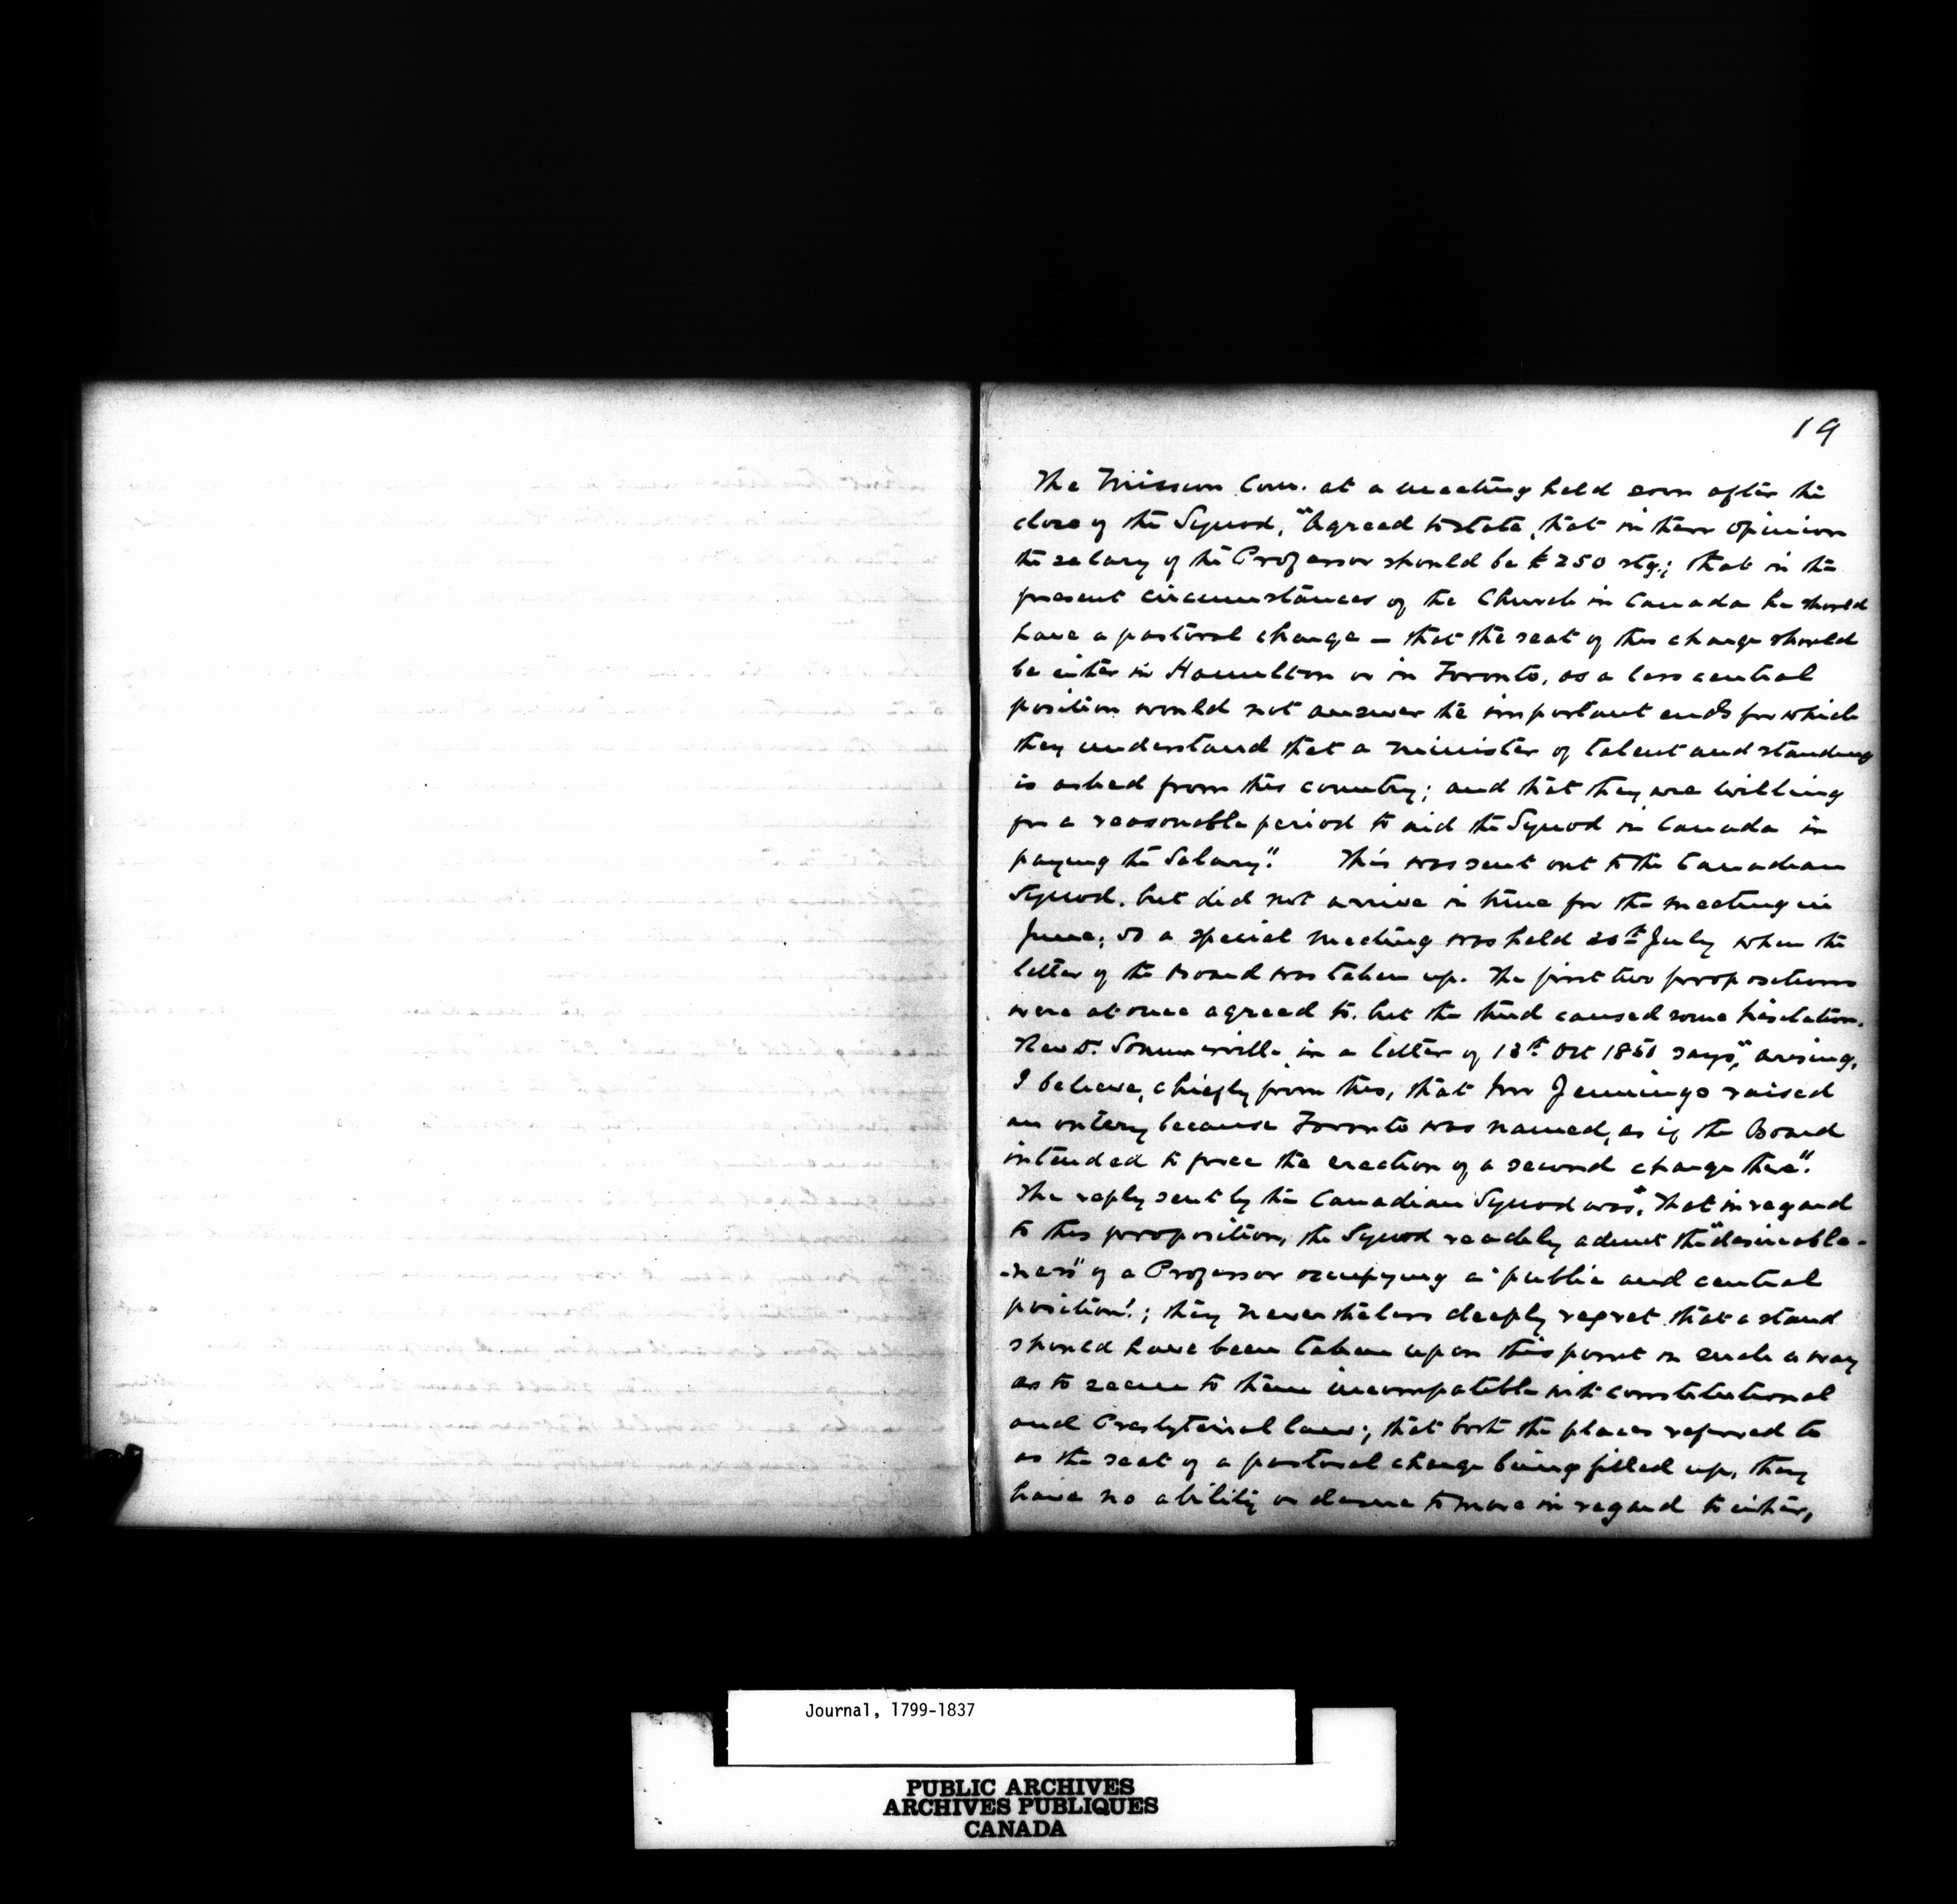 19
The Mission Com. at a meeting held soon after the
close of the Synod, "Agreed to state, that in their opinion
the salary of the Professor should be £250 stg.; that in the
present circumstances of the Church in Canada he should
have a pastoral charge — that the seat of this charge should
be either in Hamilton or in Toronto, as a less central
position would not answer the important ends for which
they understand that a minister of talent and standing
is asked from this country; and that they are willing
for a reasonable period to aid the Synod in Canada in
paying the Salary". This was sent out to the Canadian
Synod, but did not arrive in time for the meeting in
June; so a special meeting was held July when the
letter of the Board was taken up. The first two propositions
were at once agreed to, but the third caused some hesitation.
Rev Dr. Sommerville in a letter of 18th Oct 1850 says, "arising,
I believe, chiefly from this, that Mr Jennings raised
an outcry because Toronto was named, as if the Board
intended to force the erection of a second charge there".
The reply sent by the Canadian Synod was, "That in regard
to this proposition, the Synod readily admit the "desireable-
-ness" of a Professor occupying a "public and central
position"; they nevertheless deeply regret that a stand
should have been taken upon this point in such a way
as to seem to them incompatible with constitutional
and Presbyterial law; that both the places referred to
as the seat of a pastoral charge being filled up, they
have no ability or desire to move in regard to either,
Journal, 1799-1837
PUBLIC ARCHIVES
ARCHIVES PUBLIQUES
CANADA